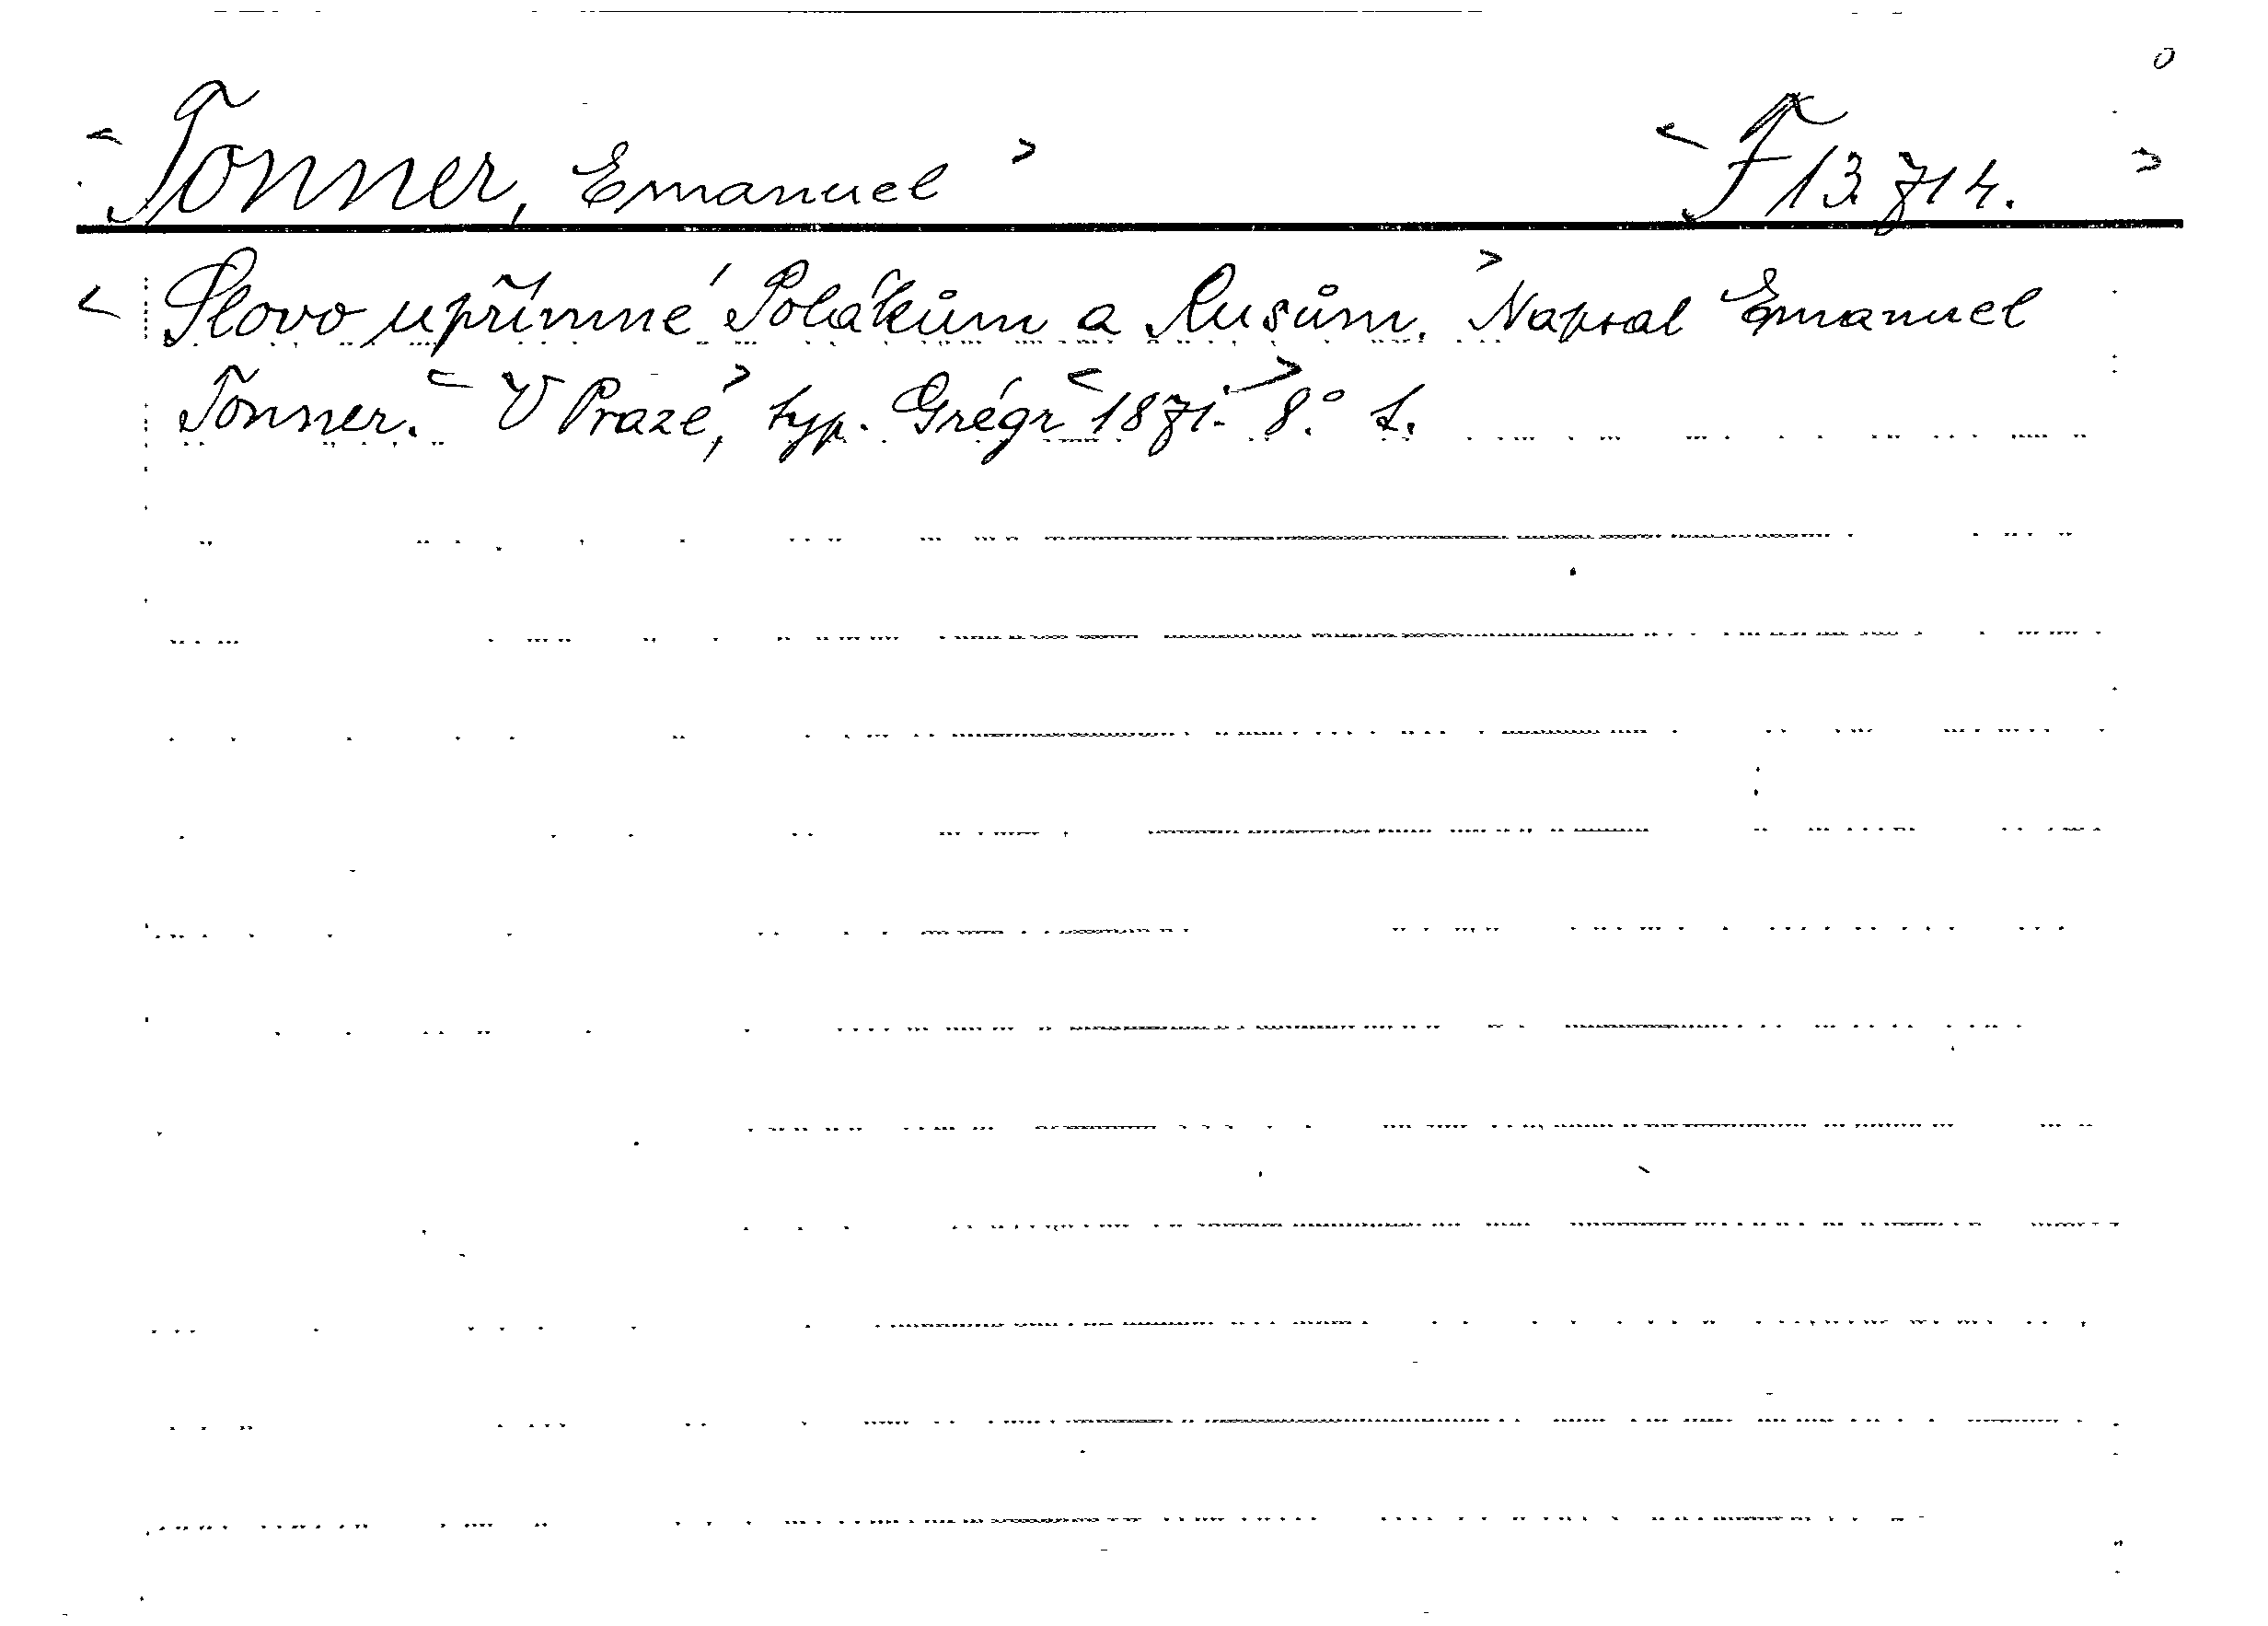 < Tonner, Emanuel > < F 13.714. >
< Slovo upřímné Polákům a Rusům. > Napsal Emanuel
Tonner. < V Praze, > typ. Grégr < 1871. > 8.°